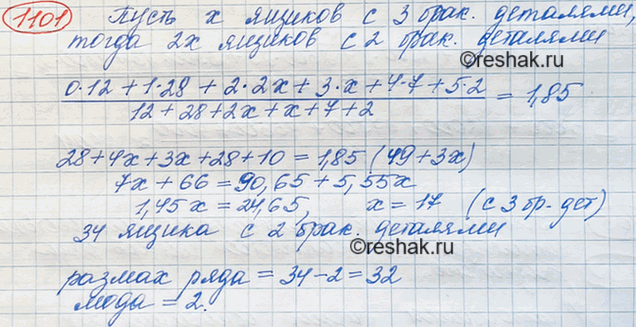 1101 Пусть x ящиков с 3 брак. деталями,
тогда 2x ящиков с 2 брак. деталями
0·12 + 1·28 + 2·2x + 3·x + 4·7 + 5·2
12 + 28 + 2x + x + 7 + 2
= 1,85
28 + 4x + 3x + 28 + 10 = 1,85 (49 + 3x)
7x + 66 = 90,65 + 5,55x
1,45x = 24,65, x = 17 (с 3 бр. дет)
34 ящика с 2 брак. деталями
©reshak.ru
размах ряда = 34 - 2 = 32
мода = 2.
©reshak.ru